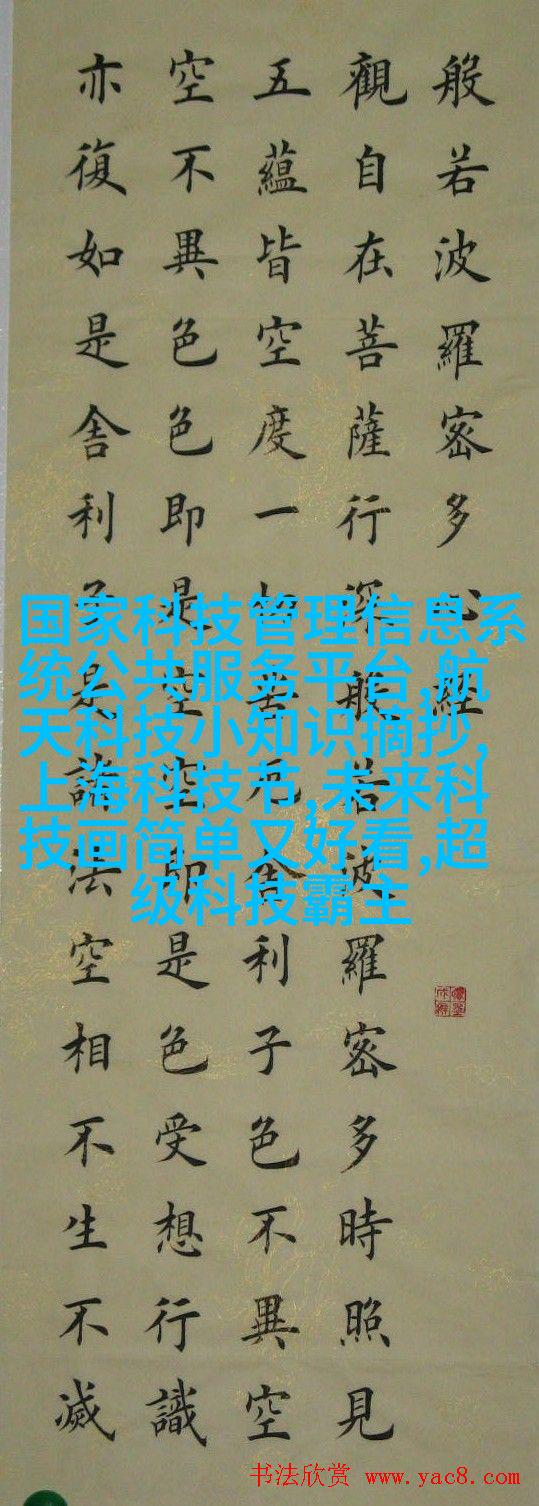 般若波羅密多心經
觀自在菩薩行深般若波羅密多時照見
五蘊皆空度一切苦厄舍利子色不異空
空不異色色即是空空即是色受想行識
亦復如是舍利子是諸法空相不生不滅
国家科技管理信息系
统公共服务平台,航
天科技小知识摘抄,
上海科技节,未来科
技画简单又好看,超
级科技霸主
书法欣赏 www.yac8.com